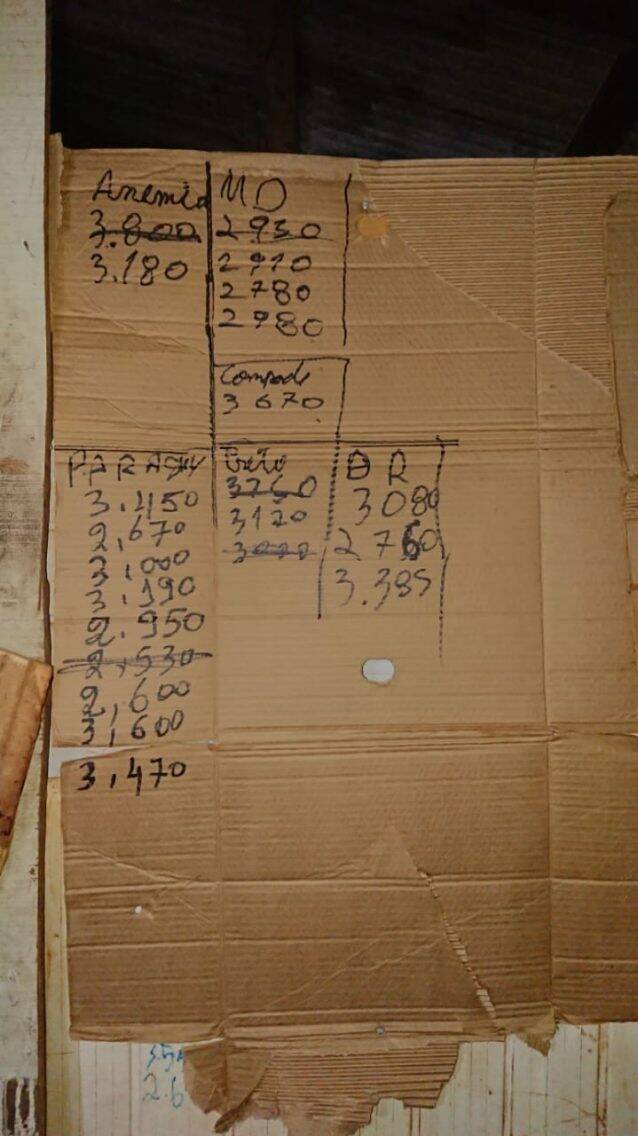 Anemia
3.800
3.180
MD
2930
2910
2780
2980
Compade
3670
3.450
2,670
2,000
3,190
2.950
2,530
2,600
3,600
3,470
3760
3120
DR
3080
2760
3.385
2.6